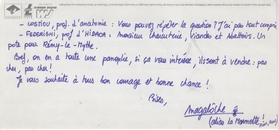 - COSTIOU, prof. d'anatomie : Vous pouvez répéter la question ? J'ai pas tout compris
- FEDERIGHI, prof. d'HIDAOA : Monsieur Charcuterie, Viandes et Abattoirs. Un
pote pour Rémy-le-Mythe.
Bref, on en a toute une panoplie, si ça vous intéresse, ils sont à vendre : pas
cher, pas cher !
Je vous souhaite à tous bon courage et bonne chance !
Bises,
Magalothe
(alias la Marmotte)